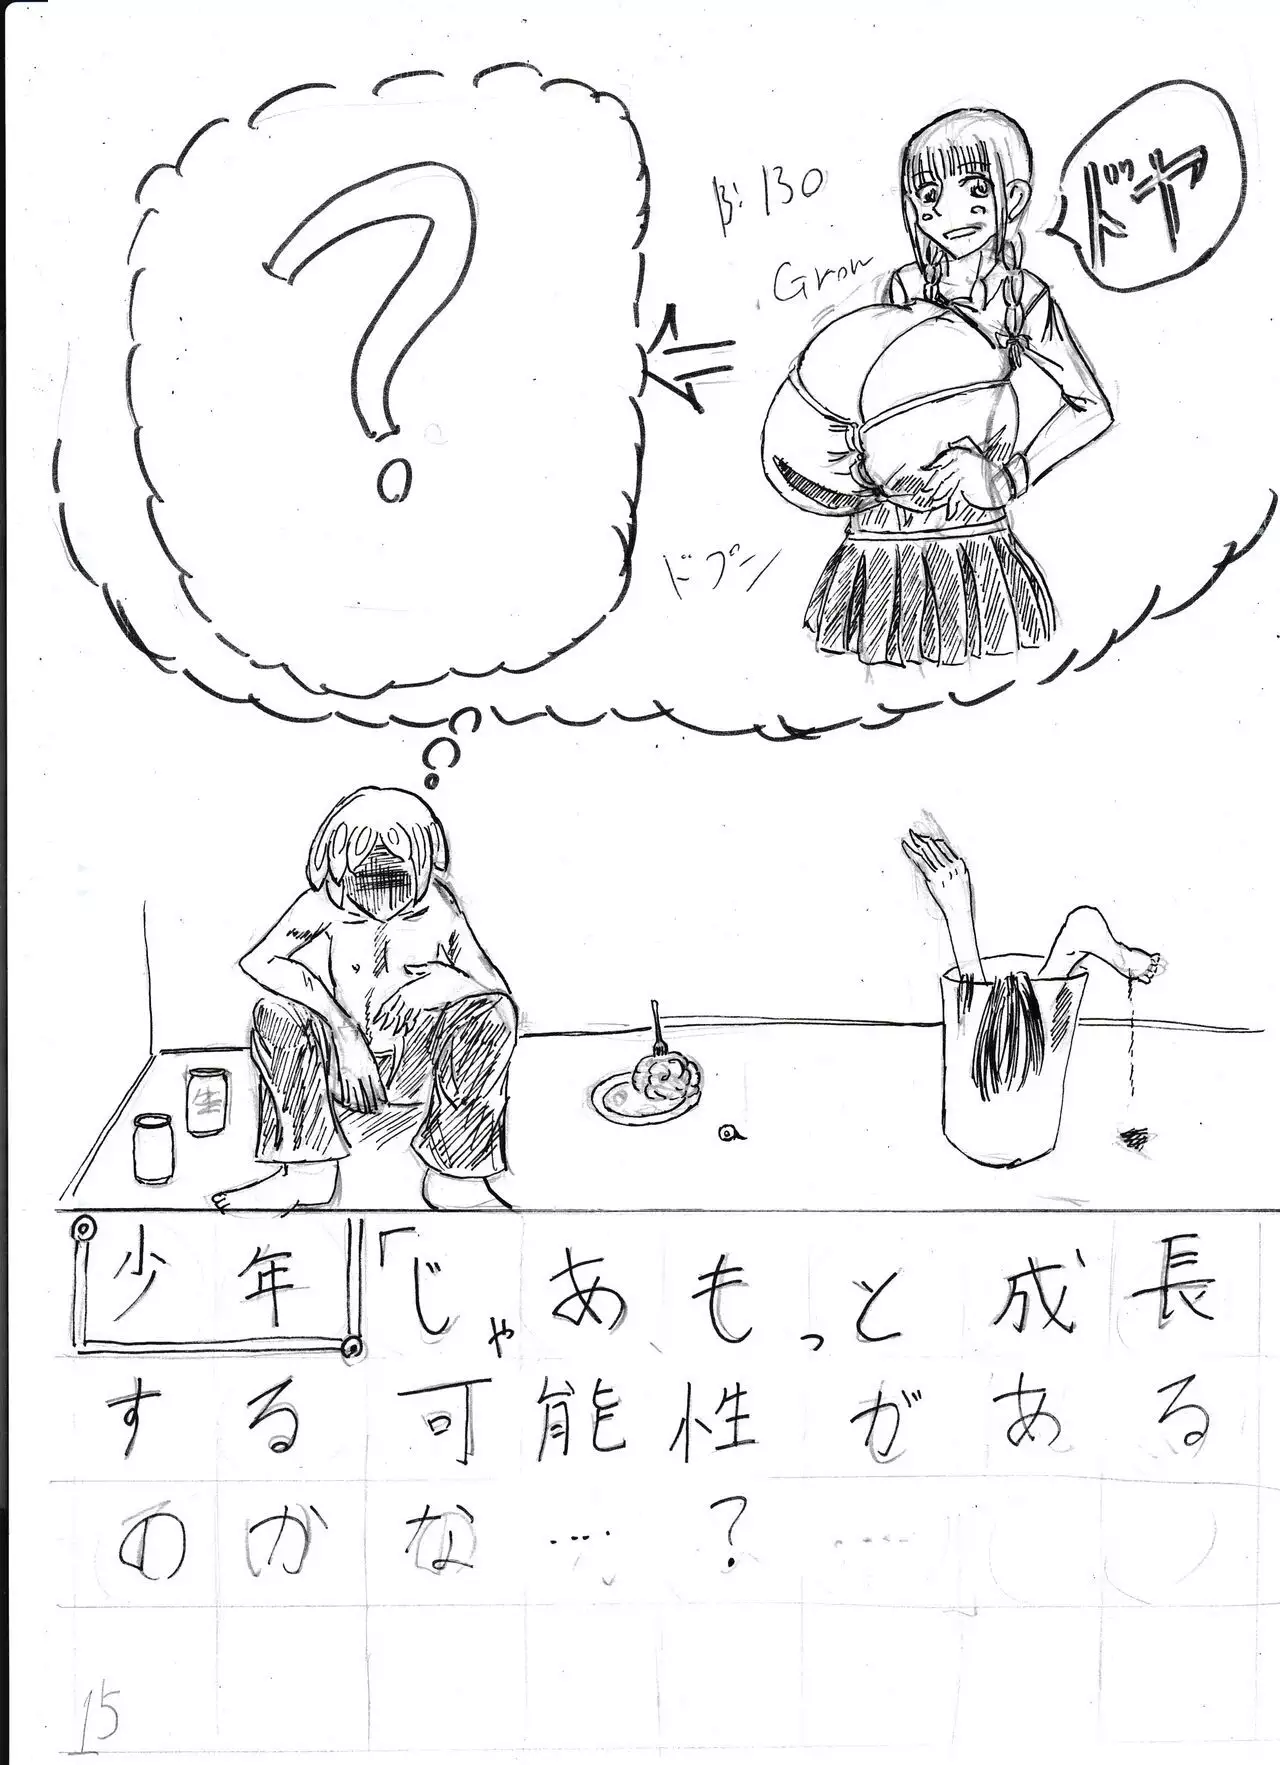 ドヤッ
B:130
Grow
ドプン
生
少年「じゃあもっと成長
する可能性がある
のかな…?
15